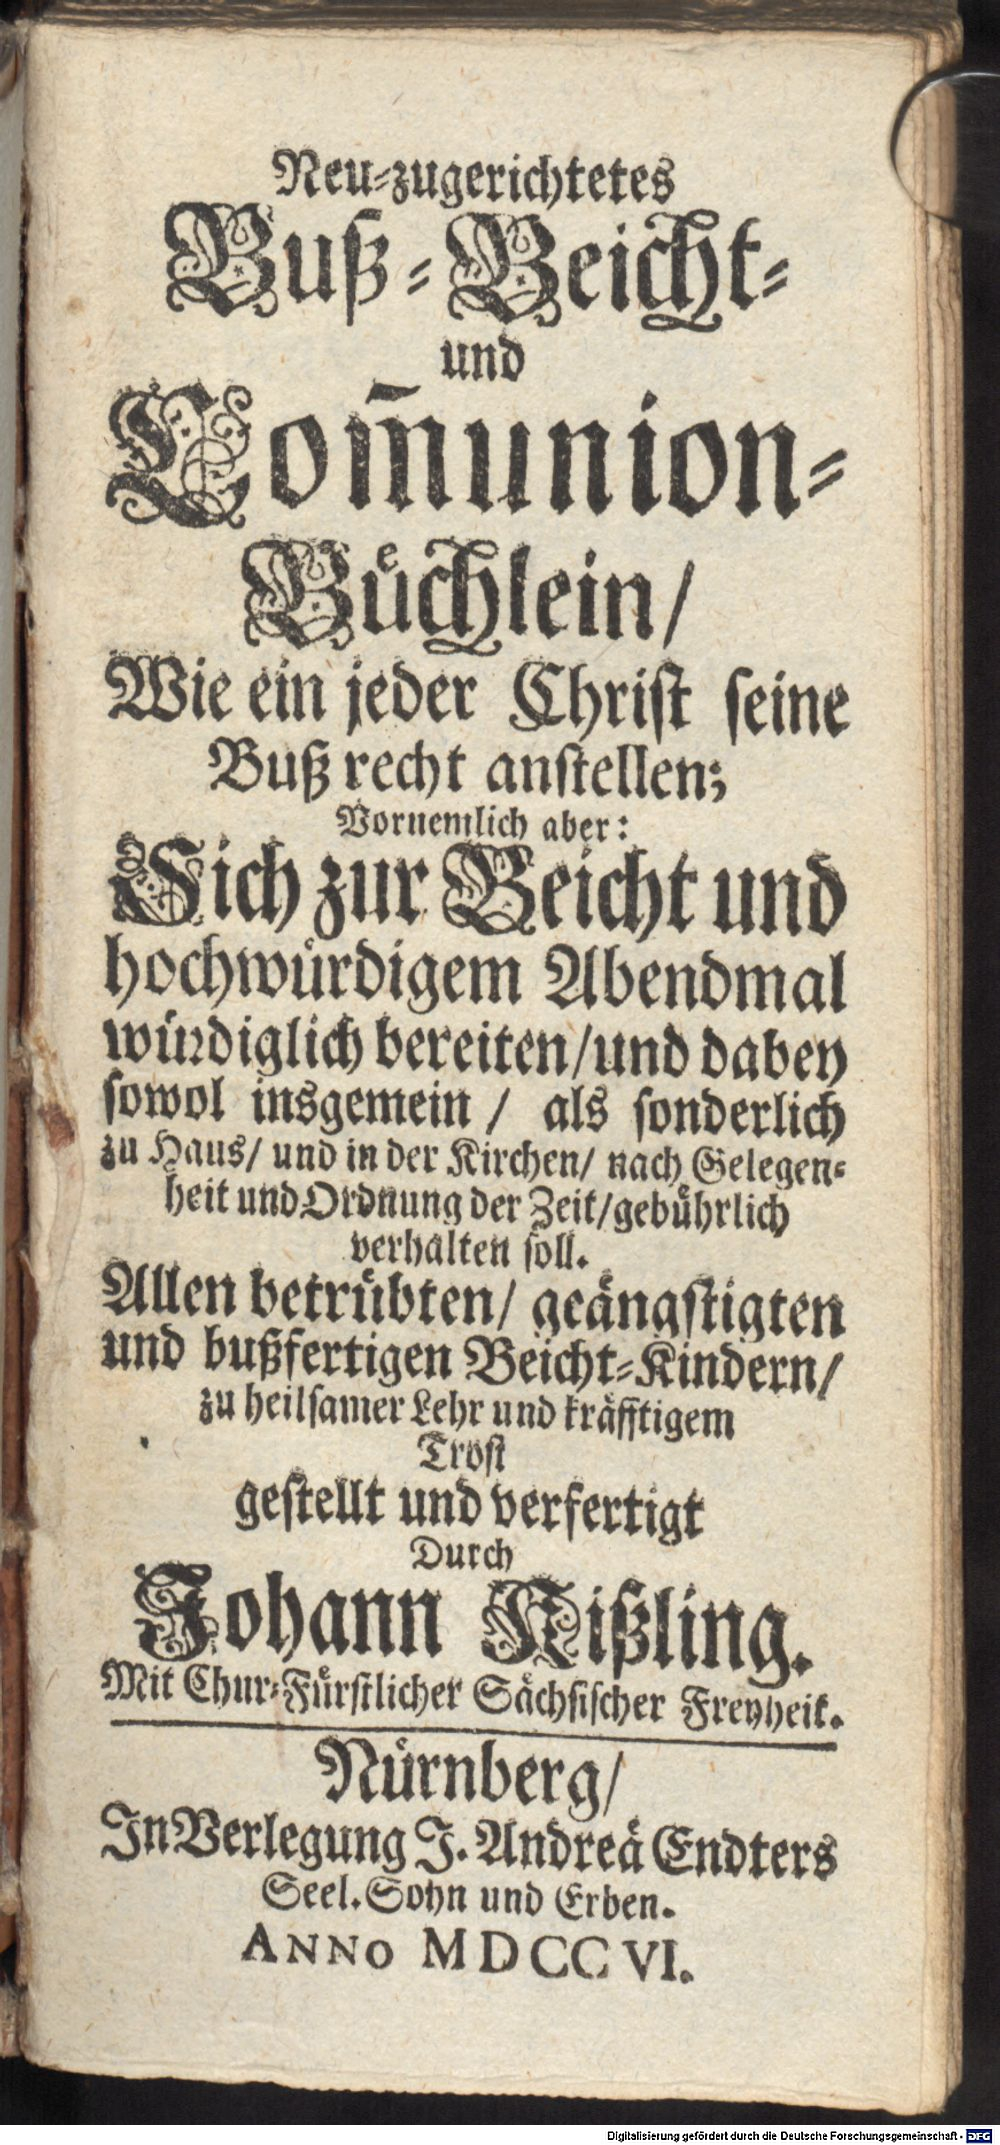 Neu-zugerichtetes
Buß-Beicht-
und
Com̃union-
Buͤchlein/
Wie ein jeder Christ seine
Buß recht anstellen;
Vornemlich aber:
Sich zur Beicht und
hochwuͤrdigem Abendmal
wuͤrdiglich bereiten/und dabey
sowol insgemein / als sonderlich
zu Haus/ und in der Kirchen/ nach Gelegen-
heit und Ordnung der Zeit/gebuͤhrlich
verhalten soll.
Allen betruͤbten/ geaͤngstigten
und bußfertigen Beicht-Kindern/
zu heilsamer Lehr und kraͤfftigem
Trost
gestellt und verfertigt
Durch
Johann Nißling.
Mit Chur-Fuͤrstlicher Saͤchsischer Freyheit.
Nuͤrnberg/
In Verlegung J. Andreaͤ Endters
Seel. Sohn und Erben.
ANNO MDCCVI.
Digitalisierung gefördert durch die Deutsche Forschungsgemeinschaft - DFG